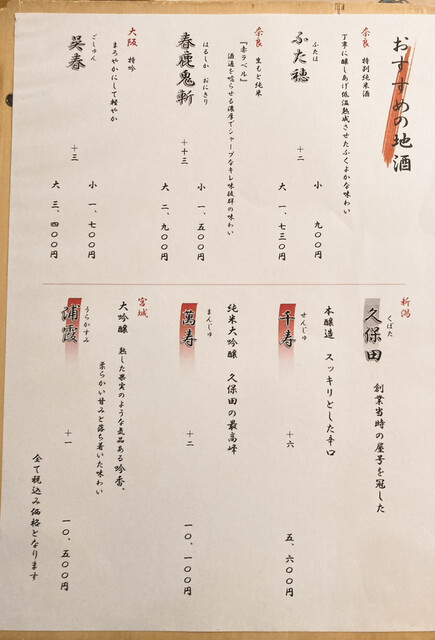 おすすめの地酒
奈良 特別純米酒
丁寧に醸しあげ低温熟成させたふくよかな味わい
ふたほ
ふた穂 十二 小 九〇〇円
大 一、七三〇円
奈良 生もと純米
『赤ラベル』
酒通を唸らせる濃厚でシャープなキレ味抜群の味わい
はるしか おにきり
春鹿鬼斬 十十三 小 一、五〇〇円
大 二、九〇〇円
大阪 特吟
まろやかにして軽やか
ごしゅん
呉春 十三 小 一、七〇〇円
大 三、四〇〇円
新潟
くぼた
久保田 創業当時の屋号を冠した
本醸造 スッキリとした辛口
せんじゅ
千寿 十六 五、六〇〇円
純米大吟醸 久保田の最高峰
まんじゅ
萬寿 十二 一〇、一〇〇円
宮城
大吟醸 熟した果実のような気品ある吟香、
柔らかい甘みと落ち着いた味わい
うらかすみ
浦霞 十一 一〇、五〇〇円
全て税込み価格となります